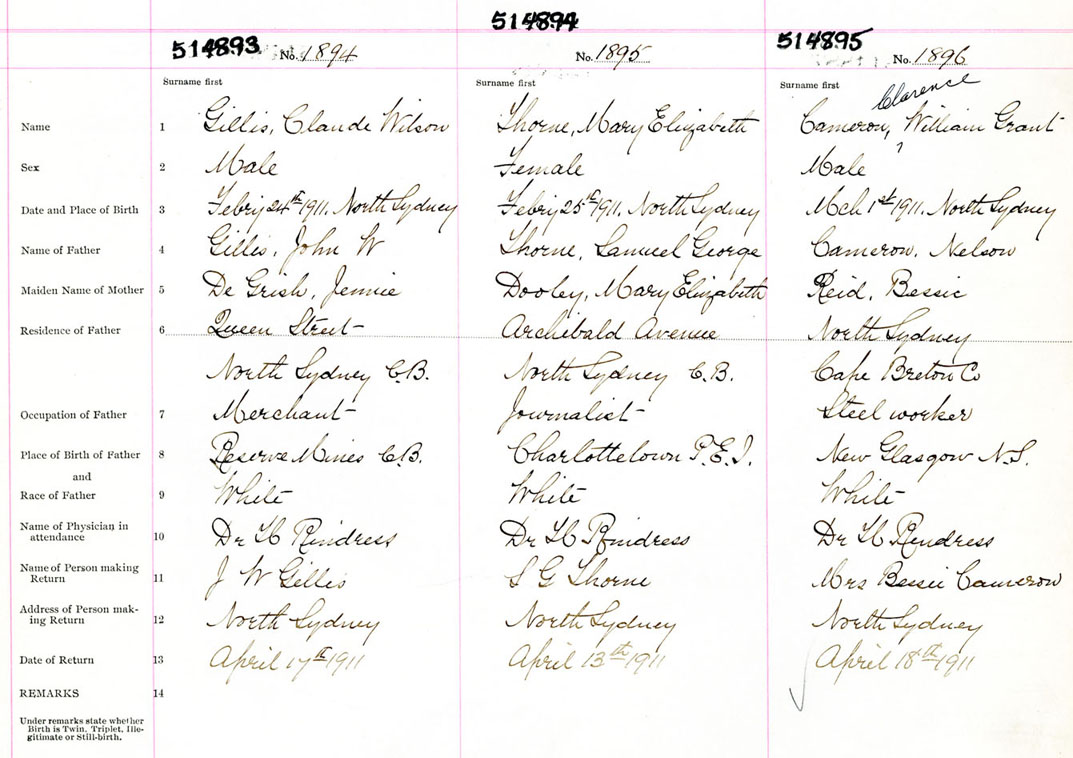 514893 No. 1894 514894 No. 1895 514895 No. 1896
Surname first Surname first Surname first
Clarence
Name 1 Gillis, Claude Wilson Thorne, Mary Elizabeth Cameron, ^ William Grant
Sex 2 Male Female Male
Date and Place of Birth 3 Febry 24th 1911. North Sydney Febry 25th 1911. North Sydney Mch 1st 1911. North Sydney
Name of Father 4 Gillis, John W Thorne, Samuel George Cameron, Nelson
Maiden Name of Mother 5 De Grish, Jennie Dooley, Mary Elizabeth Reid, Bessie
Residence of Father 6 Queen Street Archibald Avenue North Sydney
North Sydney C.B. North Sydney C.B. Cape Breton Co
Occupation of Father 7 Merchant Journalist Steel worker
Place of Birth of Father 8 Reserve Mines C.B. Charlottetown P.E.I. New Glasgow N.S.
and
Race of Father 9 White White White
Name of Physician in
attendance 10 Dr Rindress Dr Rindress Dr Rindress
Name of Person making
Return 11 J W Gillis S G Thorne Mrs Bessie Cameron
Address of Person mak-
ing Return 12 North Sydney North Sydney North Sydney
Date of Return 13 April 17th 1911 April 13th 1911 April 18th 1911
REMARKS 14
Under remarks state whether
Birth is Twin, Triplet, Ille-
gitimate or Still-birth.